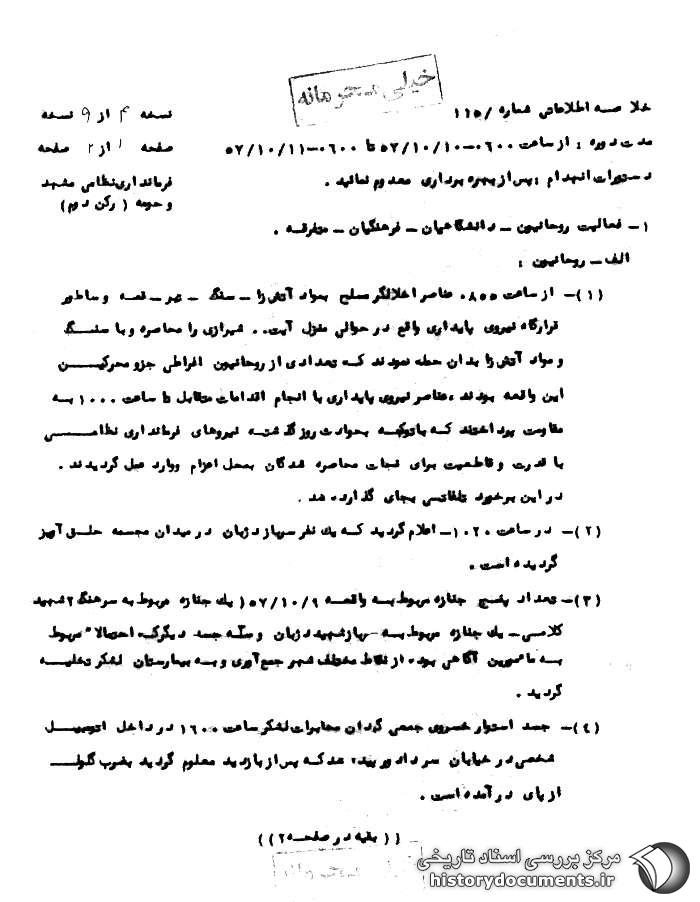 خیلی محرمانه
خلاصه اطلاعاتی شماره /۱۱۵
نسخه ۴ از ۹ نسخه
مدت دوره : از ساعت ۰۶۰۰-۵۷/۱۰/۱۰ تا ۰۶۰۰-۵۷/۱۰/۱۱
صفحه ۱ از ۲ صفحه
دستورات انهدام : پس از بهره برداری معدوم نمائید .
فرمانداری نظامی مشهد
و حومه ( رکن دوم )
۱ – فعالیت روحانیون – دانشگاهیان – فرهنگیان – متفرقه .
الف – روحانیون :
(۱) – از ساعت ۰۸۵۵ عناصر اخلالگر مسلح بمواد آتش زا – سنگ – تبر – قمه و ساطور
قرارگاه نیروی پایداری واقع در حوالی منزل آیت .. شیرازی را محاصره و با سنگ
و مواد آتش زا بدان حمله نمودند که تعدادی از روحانیون افراطی جزو محرکین
این واقعه بودند ، عناصر نیروی پایداری با انجام اقدامات متقابل تا ساعت ۱۰۰۰ به
مقاومت پرداختند که باتوجه بحوادث روز گذشته نیروهای فرمانداری نظامی
با قدرت و قاطعیت برای نجات محاصره شدگان بمحل اعزام و وارد عمل گردیدند .
در این برخورد تلفاتی بجای گذارده شد .
(۲) – در ساعت ۱۰۲۰ – اعلام گردید که یك نفر سرباز دژبان در میدان مجسمه حلق آویز
گردیده است .
(۳) – تعداد پنج جنازه مربوط به واقعه ۵۷/۱۰/۹ ( یك جنازه مربوط به سرهنگ ۲ شهید
کلاسی – یك جنازه مربوط به سرباز شهید دژبان و سه جسد دیگر که احتمالا" مربوط
به مامورین آگاهی بوده از نقاط مختلف شهر جمع آوری و به بیمارستان لشکر تخلیه
گردید .
(۴) – جسد استوار خسروی جمعی گردان مخابرات لشکر ساعت ۱۶۰۰ در داخل اتومبیل
شخصی در خیابان سردادور شد که پس از بازدید معلوم گردید بضرب گلوله
از پای درآمده است .
(( بقیه در صفحه ۲ ))
مرکز بررسی اسناد تاریخی
historydocuments.ir